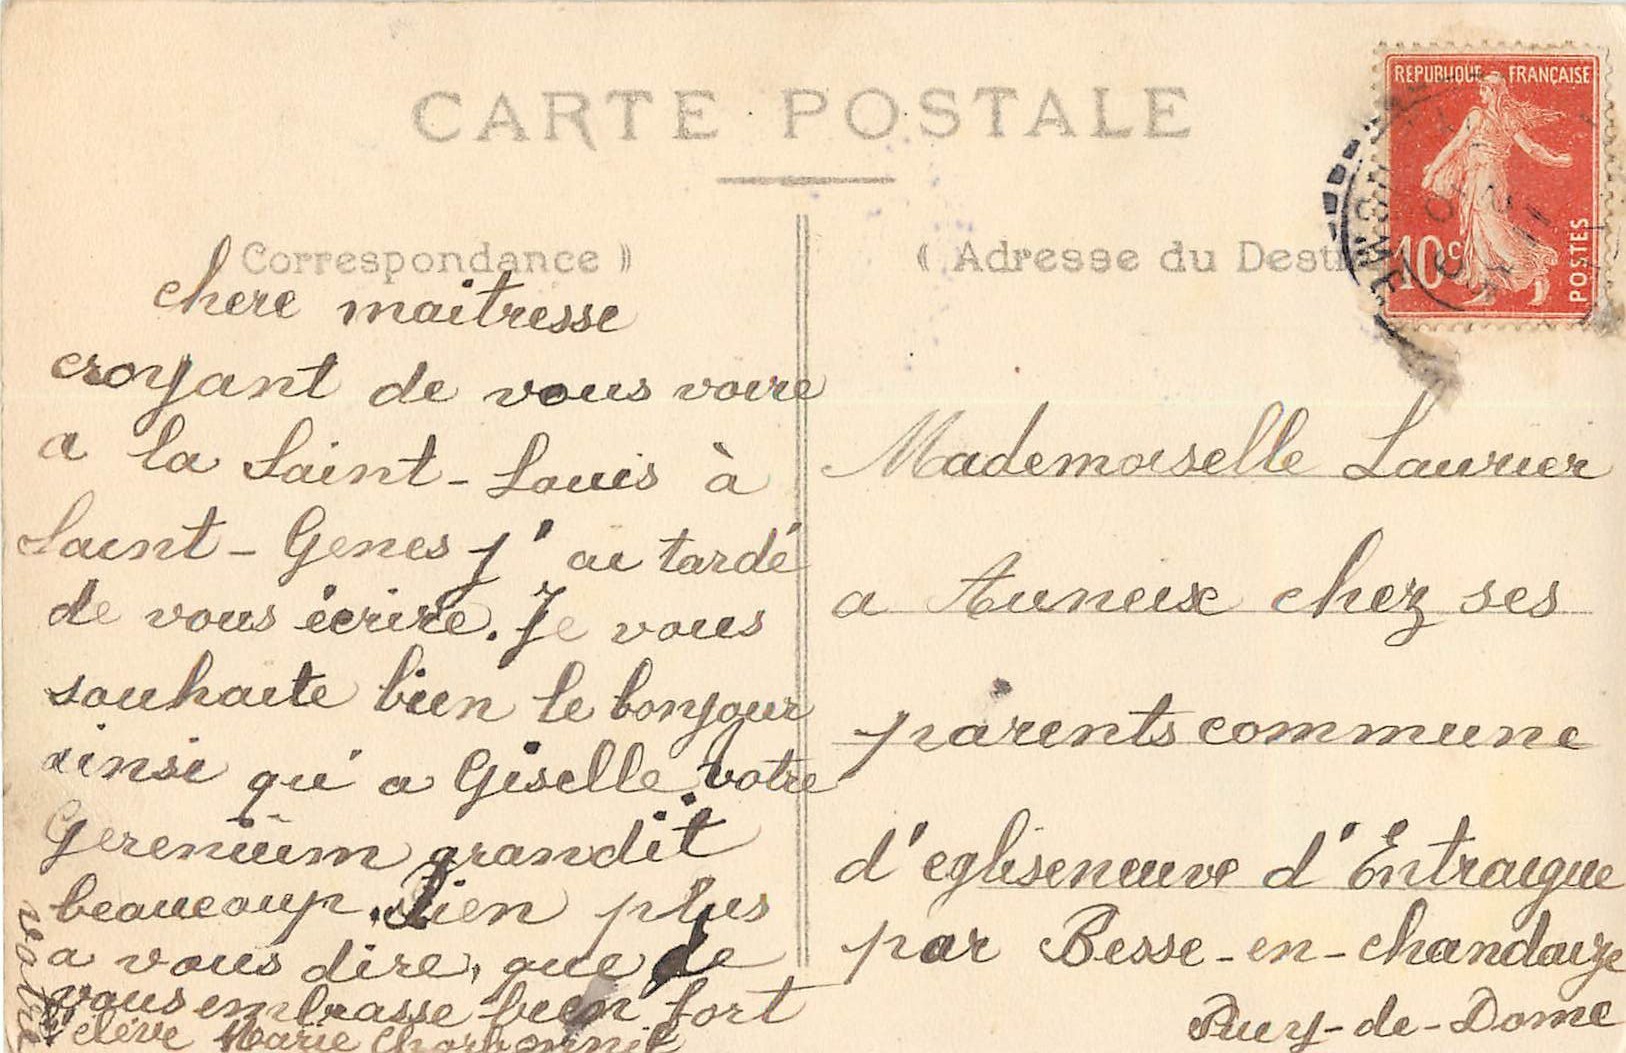 CARTE POSTALE
Correspondance )
( Adresse du Desti
REPUBLIQUE FRANÇAISE
10c
POSTES
chere maitresse
croyant de vous voire
a la Saint-Louis à
Saint-Genes j'ai tardé
de vous écrire. Je vous
souhaite bien le bonjour
ainsi qu'a Giselle. votre
Gerenium grandit
beaucoup. Rien plus
a vous dire, que de
vous embrasse bien fort
votre
élève Marie
Mademoiselle Laurier
a Auneix chez ses
parents commune
d'egliseneuve d'Entraigue
par Besse-en-chandaize
Puy-de-Dome